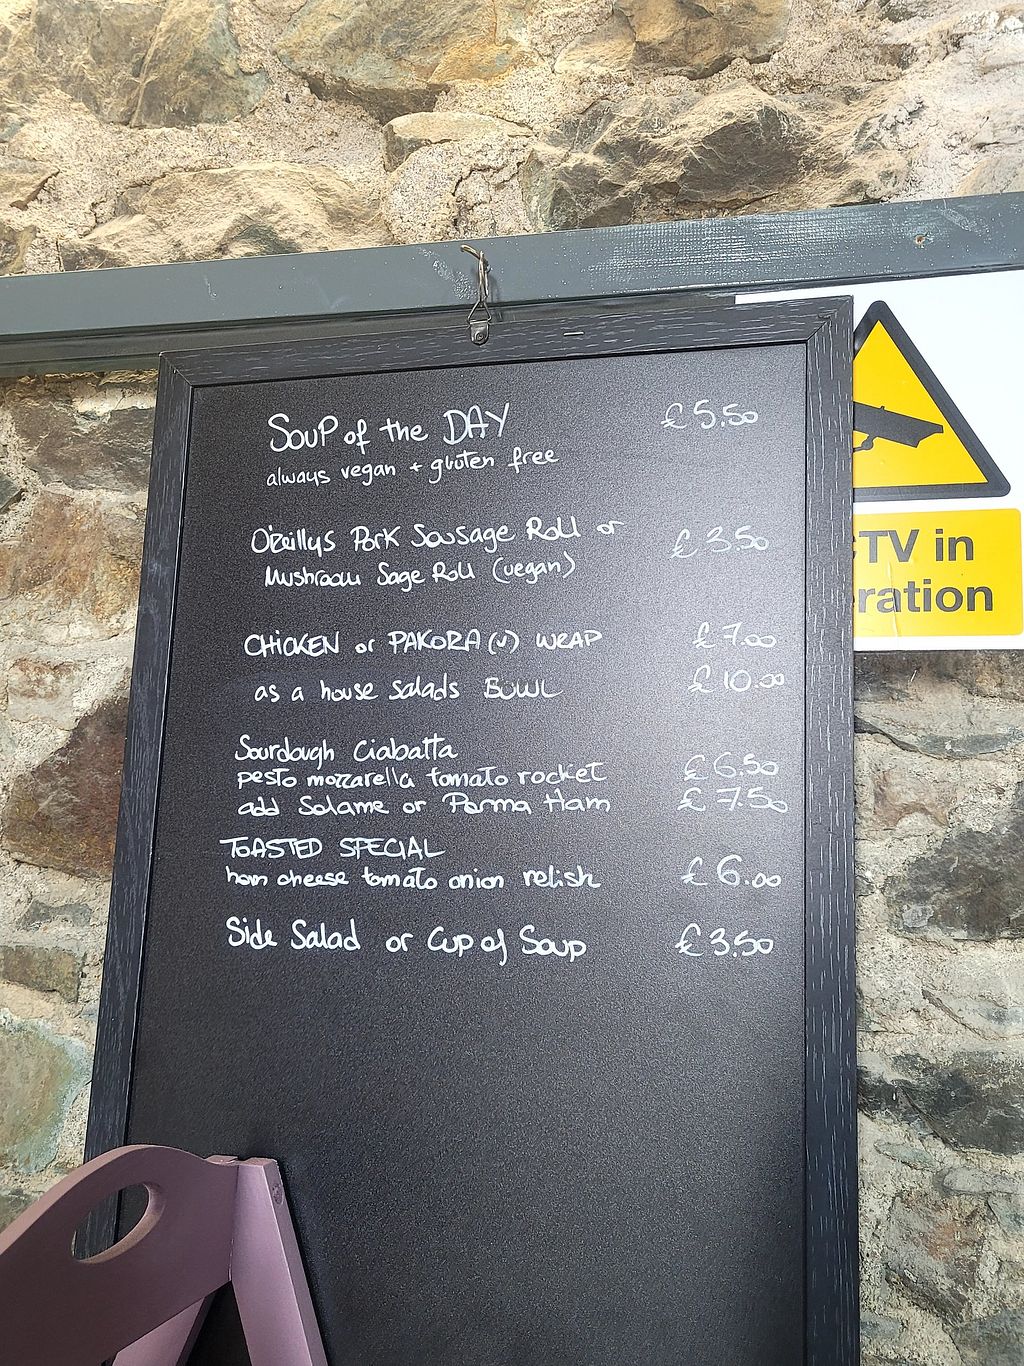 SOUP of the DAY £5.50
always vegan + gluten free
O'Reillys Pork Sausage Roll or £3.50
Mushroom Sage Roll (vegan)
CHICKEN or PAKORA (v) WRAP £7.00
as a house salads BOWL £10.00
Sourdough Ciabatta
pesto mozzarella tomato rocket £6.50
add Salame or Parma Ham £7.50
TOASTED SPECIAL
ham cheese tomato onion relish £6.00
Side Salad or Cup of Soup £3.50
TV in
ration